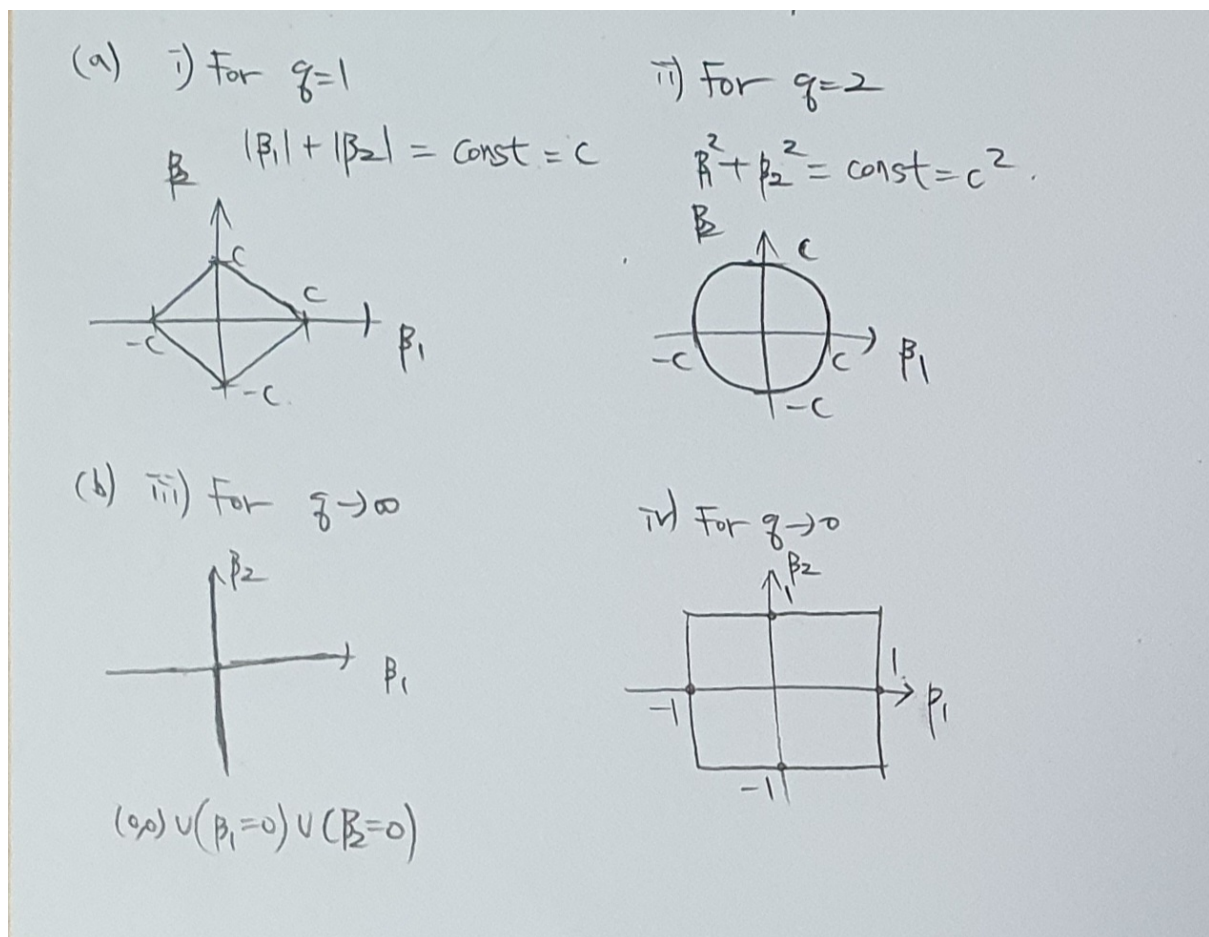 (a) i) For q=1
|β₁|+|β₂| = const = c
β₂
c
c
-c
β₁
-c.
ii) For q=2
β₁²+β₂² = const = c².
β₂
c
-c
c
β₁
-c
(b) iii) For q→∞
β₂
β₁
(0,0)∪(β₁=0)∪(β₂=0)
iv) For q→0
β₂
1
1
-1
β₁
-1